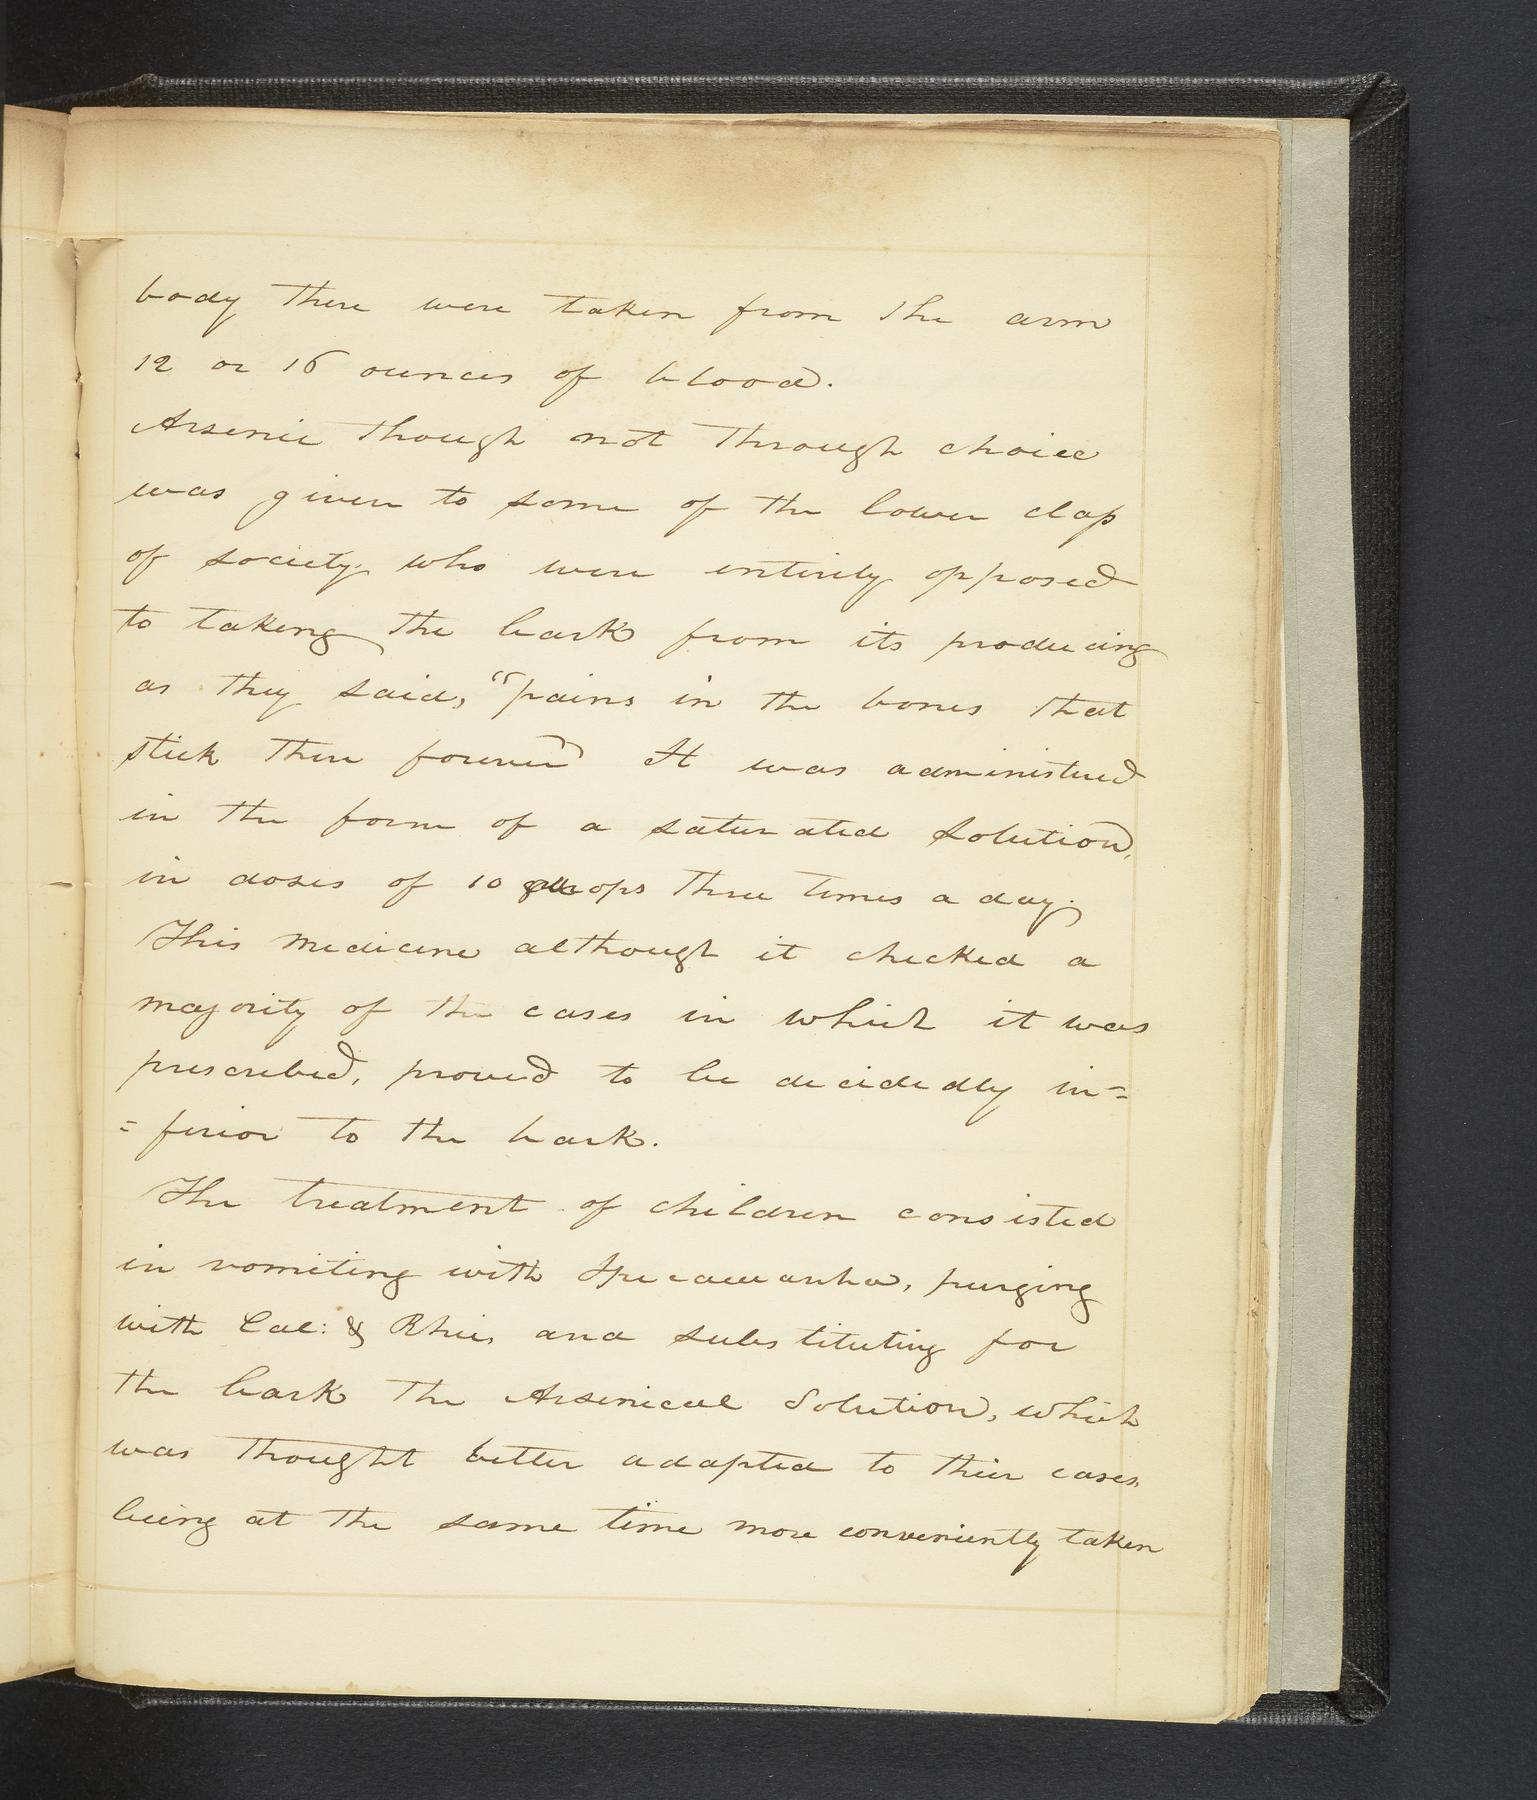 body there were taken from the arm
12 or 16 ounces of blood.
Arsenic though not through choice
was given to some of the lower class
of society, who were entirely opposed
to taking the bark from its producing
as they said, "pains in the bones that
stick there forever" It was administered
in the form of a saturated solution,
in doses of 10 drops three times a day.
This medicine although it checked a
majority of the cases in which it was
prescribed, proved to be decidedly in=
=ferior to the bark.
The treatment of children consisted
in vomiting with Ipecacuanha, purging
with Cal: & Rhei, and substituting for
the bark the Arsenical Solution, which
was thought better adapted to their cases,
being at the same time more conveniently taken